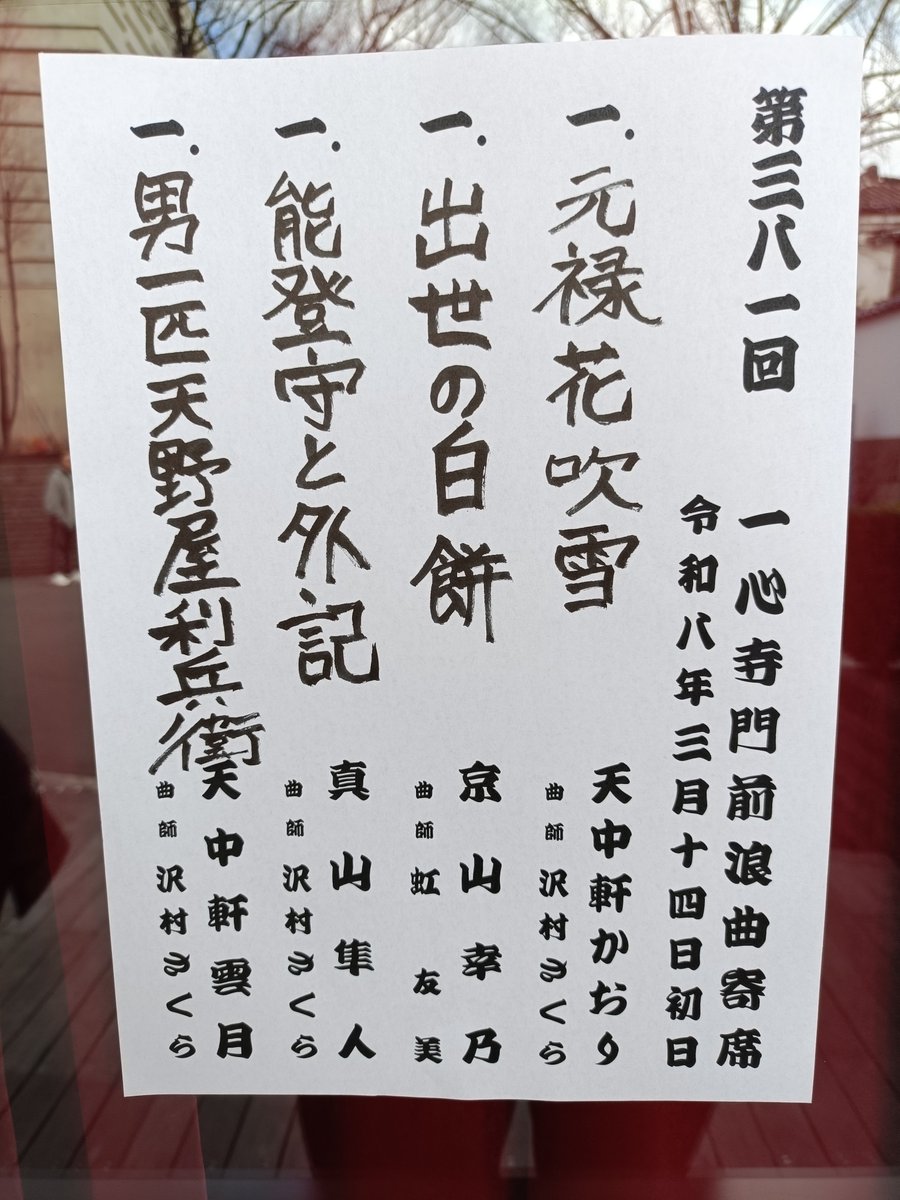 第三八一回
一心寺門前浪曲寄席
令和八年三月十四日初日
一.元禄花吹雪
天中軒かおり
曲師 沢村さくら
一.出世の白餅
京山幸乃
曲師 虹友美
一.能登守と外記
真山隼人
曲師 沢村さくら
一.男一匹天野屋利兵衛
天中軒雲月
曲師 沢村さくら